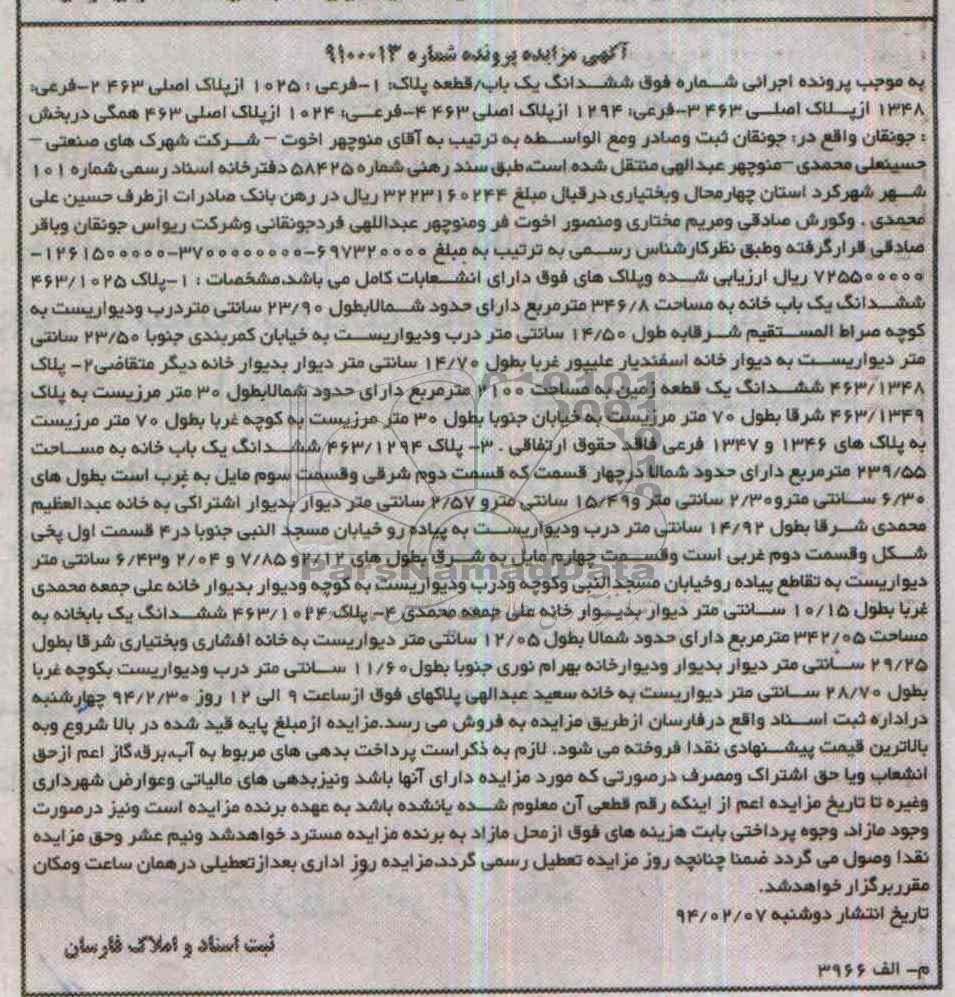 آگهی مزایده پرونده شماره ۹۱۰۰۰۱۳
به موجب پرونده اجرائی شماره فوق ششدانگ یک باب/قطعه پلاک: ۱-فرعی: ۱۰۲۵ ازپلاک اصلی ۴۶۳ ۲-فرعی:
۱۳۴۸ ازپلاک اصلی ۴۶۳ ۳-فرعی: ۱۲۹۴ ازپلاک اصلی ۴۶۳ ۴-فرعی: ۱۰۲۴ ازپلاک اصلی ۴۶۳ همگی دربخش
: جونقان واقع در: جونقان ثبت وصادر ومع الواسطه به ترتیب به آقای منوچهر اخوت – شرکت شهرک های صنعتی –
حسینعلی محمدی –منوچهر عبدالهی منتقل شده است،طبق سند رهنی شماره ۵۸۴۲۵ دفترخانه اسناد رسمی شماره ۱۰۱
شهر شهرکرد استان چهارمحال وبختیاری درقبال مبلغ ۳۲۲۳۱۶۰۲۴۴ ریال در رهن بانک صادرات ازطرف حسین علی
محمدی . وکورش صادقی ومریم مختاری ومنصور اخوت فر ومنوچهر عبداللهی فردجونقانی وشرکت ریواس جونقان وباقر
صادقی قرارگرفته وطبق نظرکارشناس رسمی به ترتیب به مبلغ ۶۹۷۳۲۰۰۰۰-۳۷۰۰۰۰۰۰۰۰-۱۲۶۱۵۰۰۰۰۰-
۷۲۵۵۰۰۰۰۰ ریال ارزیابی شده وپلاک های فوق دارای انشعابات کامل می باشد.مشخصات : ۱-پلاک ۴۶۳/۱۰۲۵
ششدانگ یک باب خانه به مساحت ۳۴۶/۸ مترمربع دارای حدود شمالابطول ۲۳/۹۰ سانتی متردرب ودیواریست به
کوچه صراط المستقیم شرقابه طول ۱۴/۵۰ سانتی متر درب ودیواریست به خیابان کمربندی جنوبا ۲۳/۵۰ سانتی
متر دیواریست به دیوار خانه اسفندیار علیپور غربا بطول ۱۴/۷۰ سانتی متر دیوار بدیوار خانه دیگر متقاضی۲- پلاک
۴۶۳/۱۳۴۸ ششدانگ یک قطعه زمین به مساحت ۲۱۰۰ مترمربع دارای حدود شمالابطول ۳۰ متر مرزیست به پلاک
۴۶۳/۱۳۴۹ شرقا بطول ۷۰ متر مرزیست به خیابان جنوبا بطول ۳۰ متر مرزیست به کوچه غربا بطول ۷۰ متر مرزیست
به پلاک های ۱۳۴۶ و ۱۳۴۷ فرعی فاقد حقوق ارتفاقی . ۳- پلاک ۴۶۳/۱۲۹۴ ششدانگ یک باب خانه به مساحت
۲۳۹/۵۵ مترمربع دارای حدود شمالا درچهار قسمت که قسمت دوم شرقی وقسمت سوم مایل به غرب است بطول های
۶/۳۰ سانتی مترو۲/۳۰ سانتی متر و۱۵/۴۹ سانتی مترو ۲/۵۷ سانتی متر دیوار بدیوار اشتراکی به خانه عبدالعظیم
محمدی شرقا بطول ۱۴/۹۲ سانتی متر درب ودیواریست به پیاده رو خیابان مسجد النبی جنوبا در۴ قسمت اول پخی
شکل وقسمت دوم غربی است وقسمت چهارم مایل به شرق بطول های ۲/۱۲و ۷/۸۵ و ۲/۰۴ و۶/۴۳ سانتی متر
دیواریست به تقاطع پیاده روخیابان مسجدالنبی وکوچه ودرب ودیواریست به کوچه ودیوار بدیوار خانه علی جمعه محمدی
غربا بطول ۱۰/۱۵ سانتی متر دیوار بدیوار خانه علی جمعه محمدی ۴- پلاک ۴۶۳/۱۰۲۴ ششدانگ یک بابخانه به
مساحت ۳۴۲/۰۵ مترمربع دارای حدود شمالا بطول ۱۲/۰۵ سانتی متر دیواریست به خانه افشاری وبختیاری شرقا بطول
۲۹/۲۵ سانتی متر دیوار بدیوار ودیوارخانه بهرام نوری جنوبا بطول۱۱/۶۰ سانتی متر درب ودیواریست بکوچه غربا
بطول ۲۸/۷۰ سانتی متر دیواریست به خانه سعید عبدالهی پلاکهای فوق ازساعت ۹ الی ۱۲ روز ۹۴/۲/۳۰ چهارشنبه
دراداره ثبت اسناد واقع درفارسان ازطریق مزایده به فروش می رسد.مزایده ازمبلغ پایه قید شده در بالا شروع وبه
بالاترین قیمت پیشنهادی نقدا فروخته می شود. لازم به ذکراست پرداخت بدهی های مربوط به آب،برق،گاز اعم ازحق
انشعاب ویا حق اشتراک ومصرف درصورتی که مورد مزایده دارای آنها باشد ونیزبدهی های مالیاتی وعوارض شهرداری
وغیره تا تاریخ مزایده اعم از اینکه رقم قطعی آن معلوم شده یانشده باشد به عهده برنده مزایده است ونیز درصورت
وجود مازاد، وجوه پرداختی بابت هزینه های فوق ازمحل مازاد به برنده مزایده مسترد خواهدشد ونیم عشر وحق مزایده
نقدا وصول می گردد ضمنا چنانچه روز مزایده تعطیل رسمی گردد،مزایده روز اداری بعدازتعطیلی درهمان ساعت ومکان
مقرربرگزار خواهدشد.
تاریخ انتشار دوشنبه ۹۴/۰۲/۰۷
ثبت اسناد و املاک فارسان
م- الف ۳۹۶۶
ParsNamadData